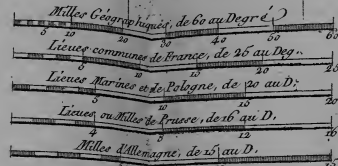 Milles Géographiques, de 60 au Degré
5 10 20 30 40 50 60
Lieues communes de France, de 25 au Deg.
5 10 15 20 25
Lieues Marines et de Pologne, de 20 au D.
5 10 15 20
Lieues ou Milles de Prusse, de 16 au D.
4 8 12 16
Milles d'Allemagne, de 15 au D.